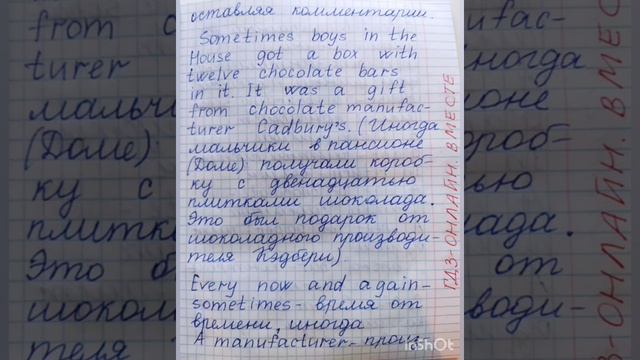 оставляя комментарии.
Sometimes boys in the
House got a box with
twelve chocolate bars
in it. It was a gift
from chocolate manufac-
turer Cadbury's. (Иногда
мальчики в пансионе
(Доме) получали короб-
ку с двенадцатью
плитками шоколада.
Это был подарок от
шоколадного производи-
теля Кэдбери)
Every now and again-
sometimes - время от
времени, иногда
A manufacturer- произ
ГДЗ-ОНЛАЙН. ВМЕСТЕ
InShOt